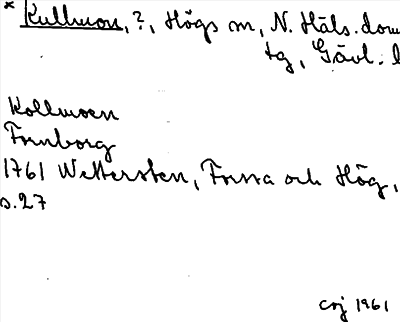 * Kullmon, ?, Högs sn, N. Häls. dom
tg, Gävl. l
Kollmoen
Fornborg
1761 Wettersten, Forssa och Hög,
s. 27
coj 1961